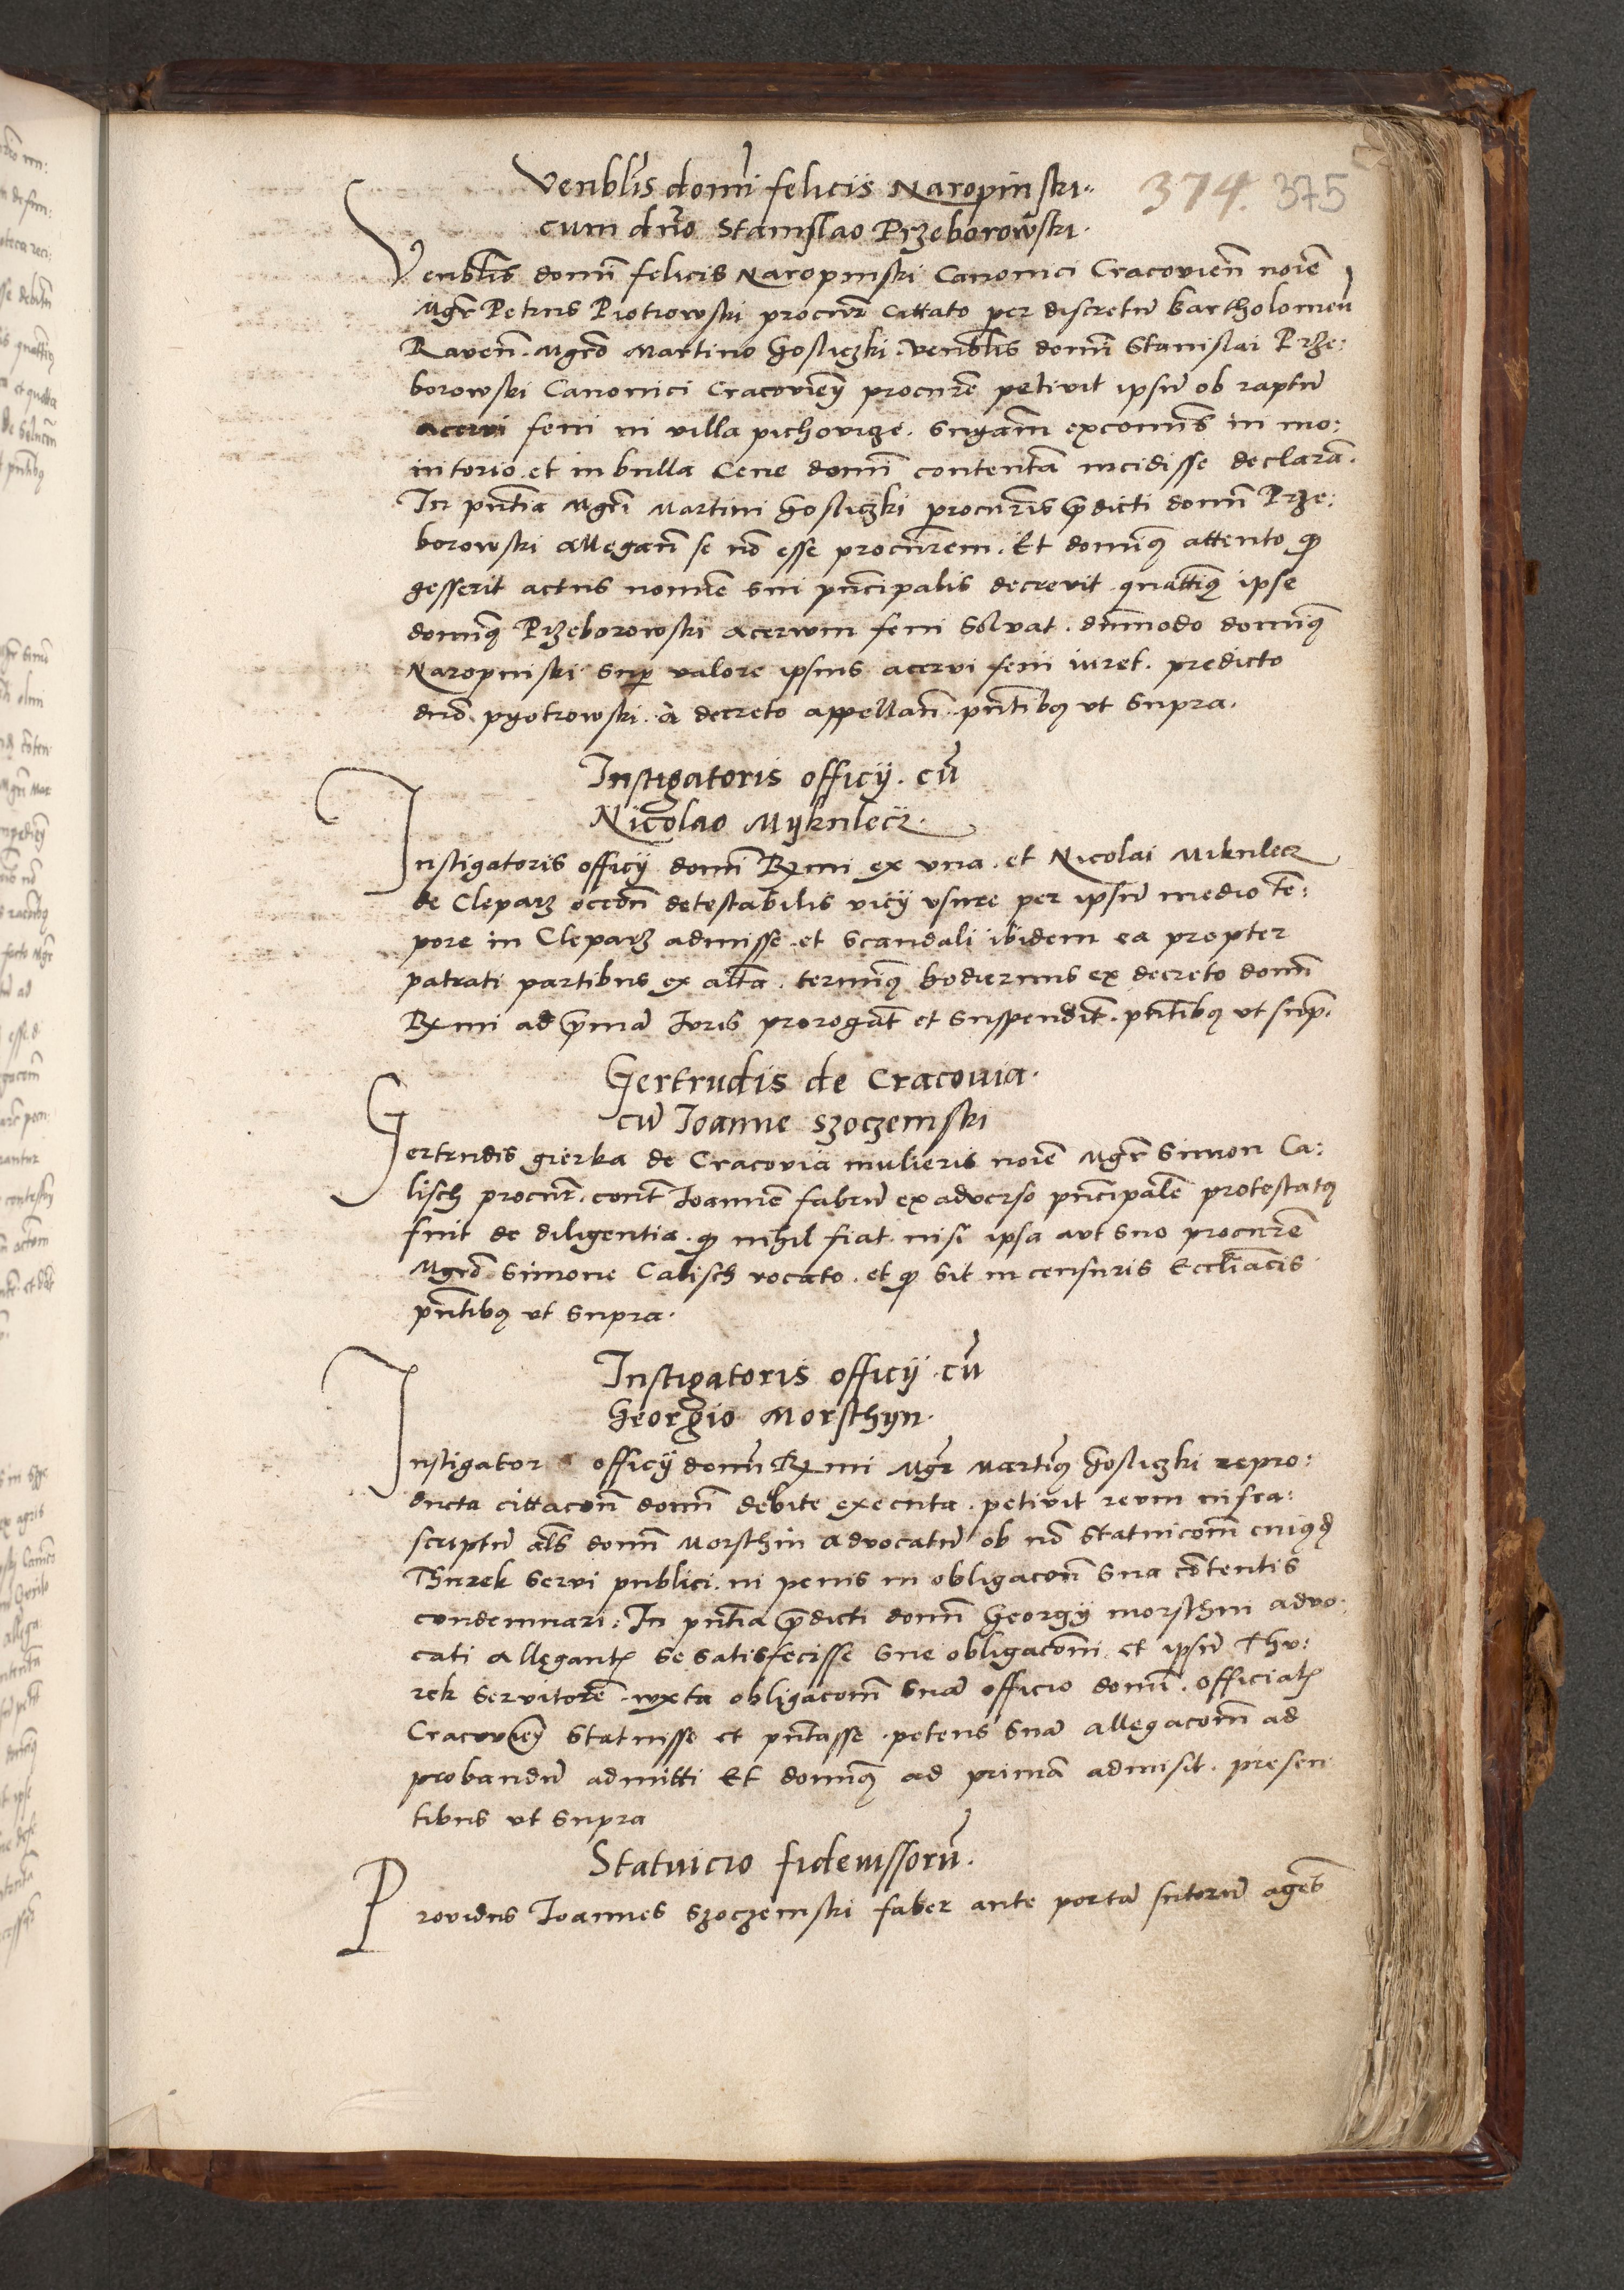 Venblis domi felicis Naropinski
374. 375
cum dno Stanislao Przeborowski.
Venblis domi felicis Naropinski Canonici Cracovien noie
Mgr Petrus Piotrowski procur cittato per discretu bartholomeu
Raven. Mgro Martino Gosliczki. venblis domi Stanislai Prze:
borowski Canonici Cracovien procure petivit ipsu ob raptu
acervi feni in villa pichovize. sngam excomis in mo:
intorio. et in bulla Cene domi contenta incidisse declara.
In pntia Mgri Martini Gosliczki procuris pdicti domi Prze:
borowski allegan se no esse procurem. Et domiq attento q
gesserit actus nomie sui pncipalis decrevit quattiq ipse
domiq Przeborowski acervum feni solvat. dumodo domiq
Naropinski sup valore ipsius acervi feni iuret. predicto
dno pyotrowski. a decreto appellan. pntibq ut supra.
Instigatoris officij. cu
Nicolao Myknlecz.
Instigatoris officij domi Rxmi ex una. et Nicolai Miknlecz
de Cleparz occon detestabilis vicij usure per ipsu medio te:
pore in Cleparz admisse. et scandali ibidem ea propter
patrati partibus ex alta. termiq hodiernus ex decreto domi
Rxmi ad pma Juris prorogat et suspendit. pntibq ut sup.
Gertrudis de Cracovia.
cu Joanne Szoczemski
Gertrudis gierka de Cracovia mulieris noie Mgr Simon Ca:
lisch procur. cont Joannem fabru ex adverso pncipale protestatq
fuit de diligentia. q nihil fiat. nisi ipsa aut suo procure
Mgro Simone Calisch vocato. et q sit in censuris Eccliacis
pntibq ut supra.
Instigatoris officij cu
Georgio Morsthyn.
Instigator officij domi Rxmi Mgr Martiq Gosliczki repro:
ducta cittacon domi debite executa. petivit reum infra:
scriptu als domi Morsthin advocatu ob no statuicom cuiqd
Thurek servi publici. in penis in obligacon sua cotentis
condemnari: In pntia pdicti domi Georgij morsthin advo:
cati allegant se satisfecisse sue obligacomi. et ipsu Thu:
rek servitore. iuxta obligacom sua officio domi. officialis
Cracovien statuisse et pntasse. petens sua allegacom ad
probandu admitti Et domiq ad prima admisit. presen
tibus ut supra
Statuicio fideiussoru.
Providus Joannes Szoczemski faber ante porta sutoru agens